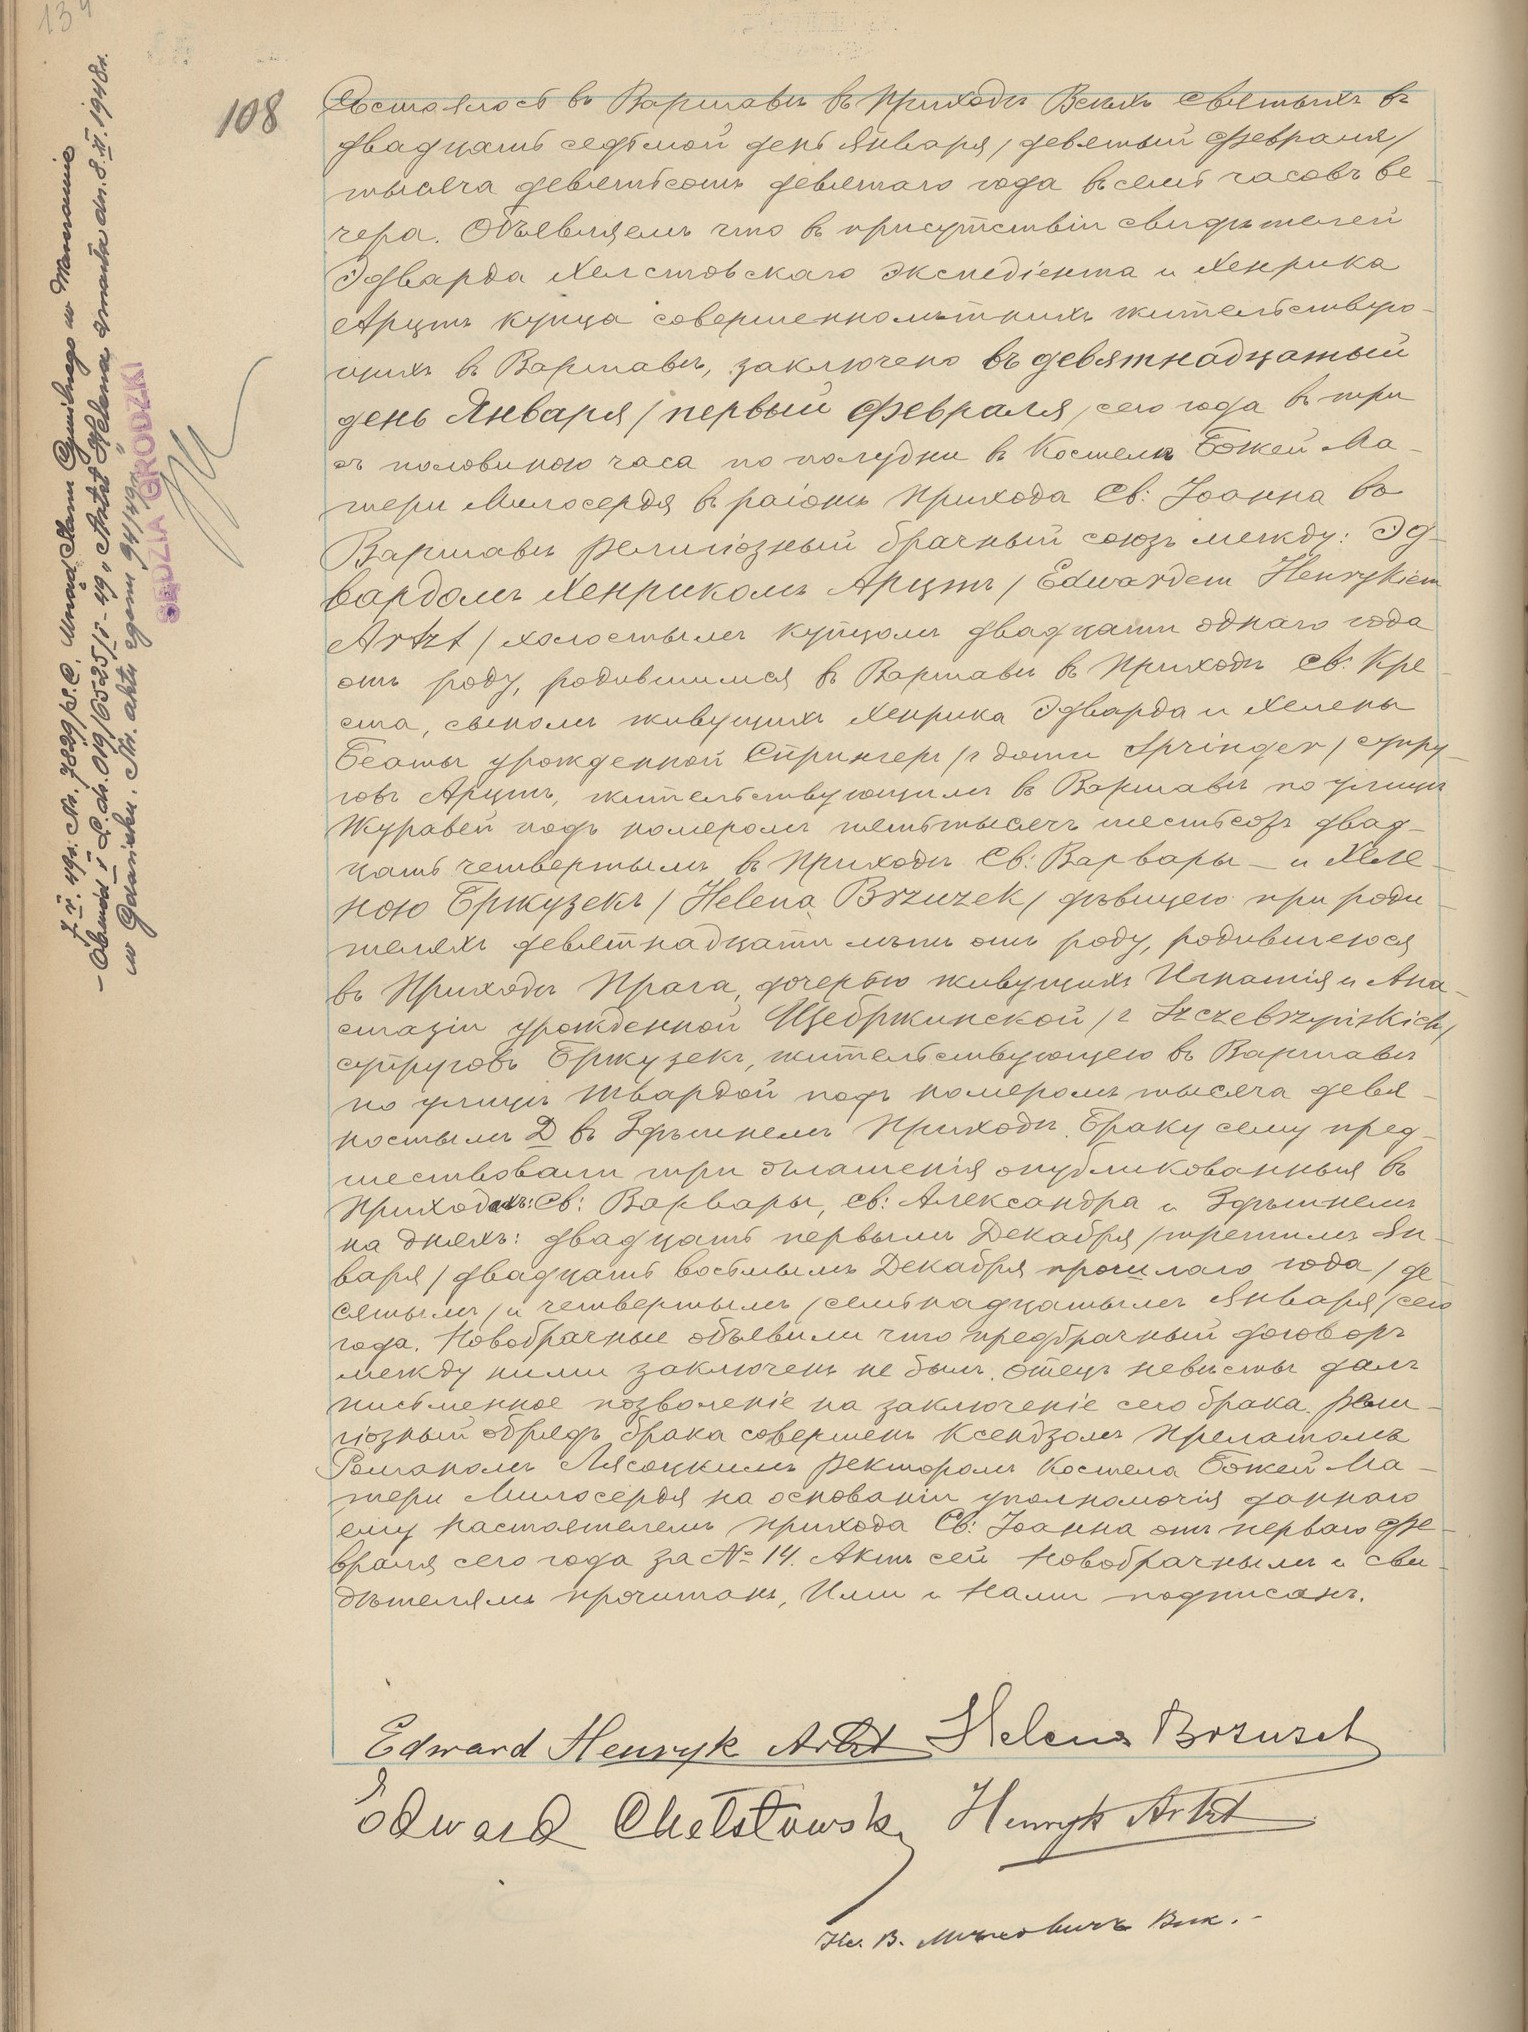 134
108
Состоялось въ Варшавѣ въ Приходѣ Всѣхъ Святыхъ въ
двадцать седьмой день Января / девятый Февраля /
тысяча девятьсотъ девятаго года въ семь часовъ ве-
чера. Объявляемъ что въ присутствіи свидѣтелей
Эдварда Хелстовскаго экспедіента и Хенрика
Арцтъ купца совершеннолѣтнихъ жительствую-
щихъ въ Варшавѣ, заключено въ девятнадцатый
день Января / первый Февраля / сего года въ три
съ половиною часа по полудни въ Костелѣ Божей Ма-
тери Милосердя въ раіонѣ Прихода Св: Іоанна въ
Варшавѣ религіозный брачный союзъ между: Эд-
вардомъ Хенрикомъ Арцтъ / Edwardem Henrykiem
Artzt / холостымъ купцомъ двадцати однаго года
отъ роду, родившимся въ Варшавѣ въ Приходѣ Св: Кре-
ста, сыномъ живущихъ Хенрика Эдварда и Хелены
Беаты урожденной Спрингеръ / z domu Springer / супру-
говъ Арцтъ, жительствующимъ въ Варшавѣ по улицѣ
Журавей подъ номеромъ пятьтысячъ шестьсотъ двад-
цать четвертымъ въ Приходѣ Св: Варвары – и Хеле-
ною Бржузекъ / Helena Brzuzek / дѣвицею при роди-
теляхъ девятнадцати лѣтъ отъ роду, родившеюся
въ Приходѣ Прага, дочерью живущихъ Игнатія и Ана-
стазіи урожденной Щебржинской / z Szczebrzyńskich /
супруговъ Бржузекъ, жительствующею въ Варшавѣ
по улицѣ Твардой подъ номеромъ тысяча девя-
ностымъ D въ Здѣшнемъ Приходѣ. Браку сему пред-
шествовали три оглашенія опубликованныя въ
Приходахъ: Св: Варвары, Св: Александра и Здѣшнемъ
на дняхъ: двадцать первымъ Декабря / третимъ Ян-
варя / двадцать восьмымъ Декабря прошлаго года / де-
сятымъ / и четвертымъ / семьнадцатымъ Января / сего
года. Новобрачные объявили что предбрачный договоръ
между ними заключенъ не былъ. Отецъ невѣсты далъ
письменное позволеніе на заключеніе сего брака. Рели-
гіозный обрядъ брака совершенъ Ксендзомъ Прелатомъ
Романомъ Лясоцкимъ Ректоромъ Костела Божей Ма-
тери Милосердя на основаніи уполномочія даннаго
ему настоятелемъ Прихода Св: Іоанна отъ перваго Фе-
враля сего года за № 14. Актъ сей Новобрачнымъ и сви-
дѣтелямъ прочитанъ, Ими и Нами подписанъ.
Edward Henryk Artzt Helena Brzuzek
Edward Chełstowski Henryk Artzt
Кс. В. Вик.
7.V.49r. Nr. 7829/ps.C. Urząd Stanu Cywilnego w Warszawie
– Obwód I L.dz. 019/6525/I-49 „Artzt Helena zmarła dn. 8.II.1948r.
w Gdańsku. Nr. aktu zgonu 94/49"
SĘDZIA GRODZKI